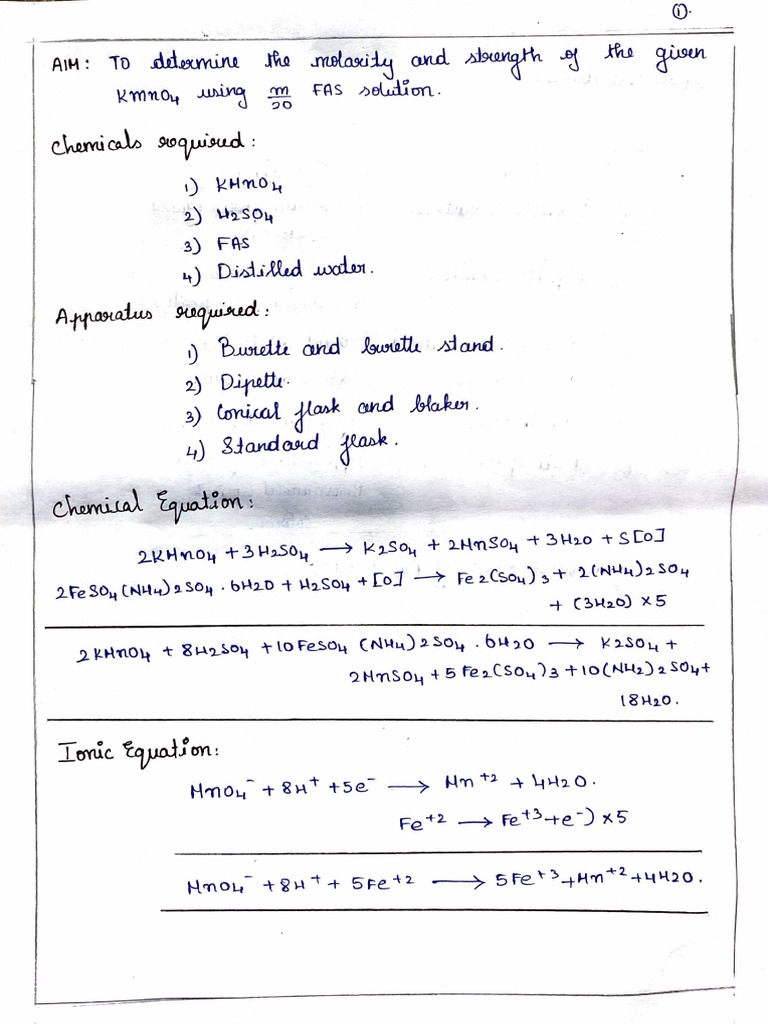 ①.
AIM: TO determine the molarity and strength of the given
KMnO4 using m/20 FAS solution.
Chemicals required:
1) KMnO4
2) H2SO4
3) FAS
4) Distilled water.
Apparatus required:
1) Burette and burette stand.
2) Pipette.
3) Conical flask and blaker.
4) Standard flask.
Chemical Equation:
2KMnO4 + 3H2SO4 → K2SO4 + 2MnSO4 + 3H2O + 5[O]
2FeSO4(NH4)2SO4 · 6H2O + H2SO4 + [O] → Fe2(SO4)3 + 2(NH4)2SO4
+ (3H2O) ×5
2KMnO4 + 8H2SO4 + 10FeSO4 (NH4)2SO4 · 6H2O → K2SO4 +
2MnSO4 + 5Fe2(SO4)3 + 10(NH2)2SO4 +
18H2O.
Ionic Equation:
MnO4⁻ + 8H⁺ + 5e⁻ → Mn⁺² + 4H2O.
Fe⁺² → Fe⁺³ + e⁻) ×5
MnO4⁻ + 8H⁺ + 5Fe⁺² → 5Fe⁺³ + Mn⁺² + 4H2O.